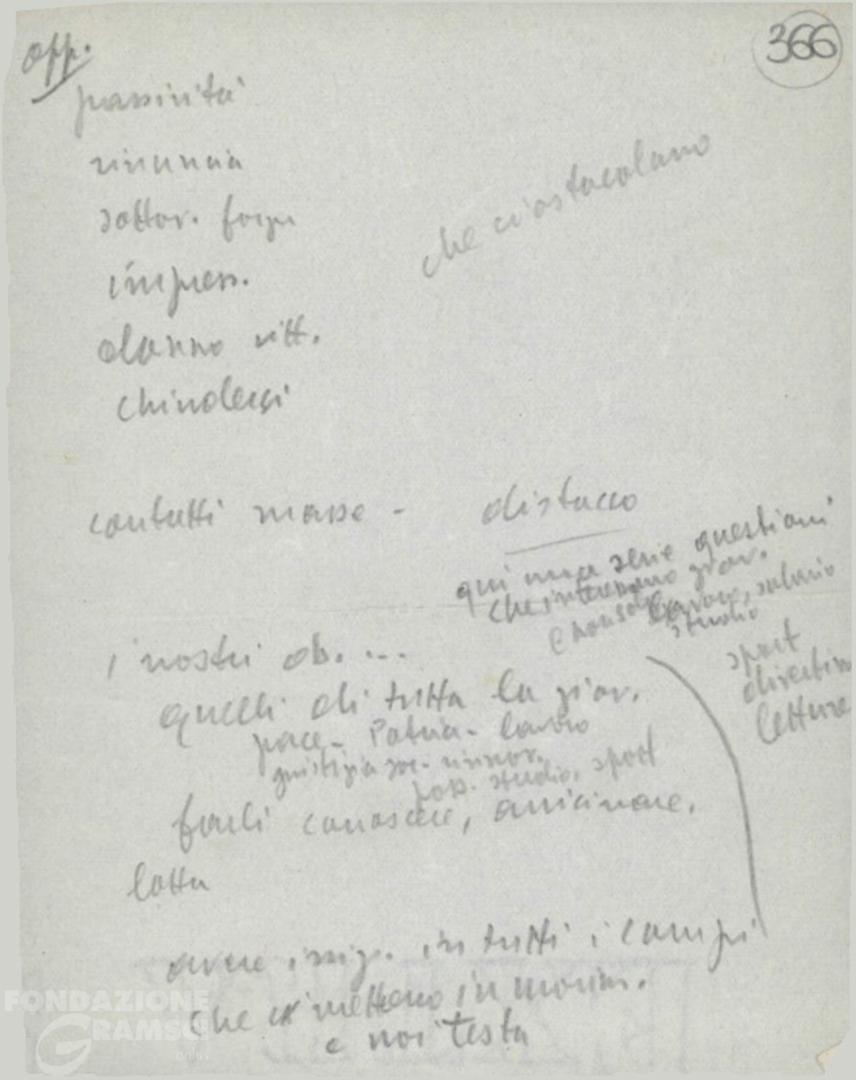 366
opp.
passività
rinuncia
sottov. forze
che ci ostacolano
impress.
danno vitt.
chiudersi
contatti masse - distacco
qui una serie questioni
che interessano giov.
e
lavoro, salario
studio
sport
divertim
letture
i nostri ob. ...
quelli di tutta la giov.
pace - Patria - lavoro
giustizia soc. rinnov.
pop. studio, sport
farli conoscere, avvicinare.
lotta
avere iniz. in tutti i campi
che mettono in movim.
e noi testa
FONDAZIONE
GRAMSCI